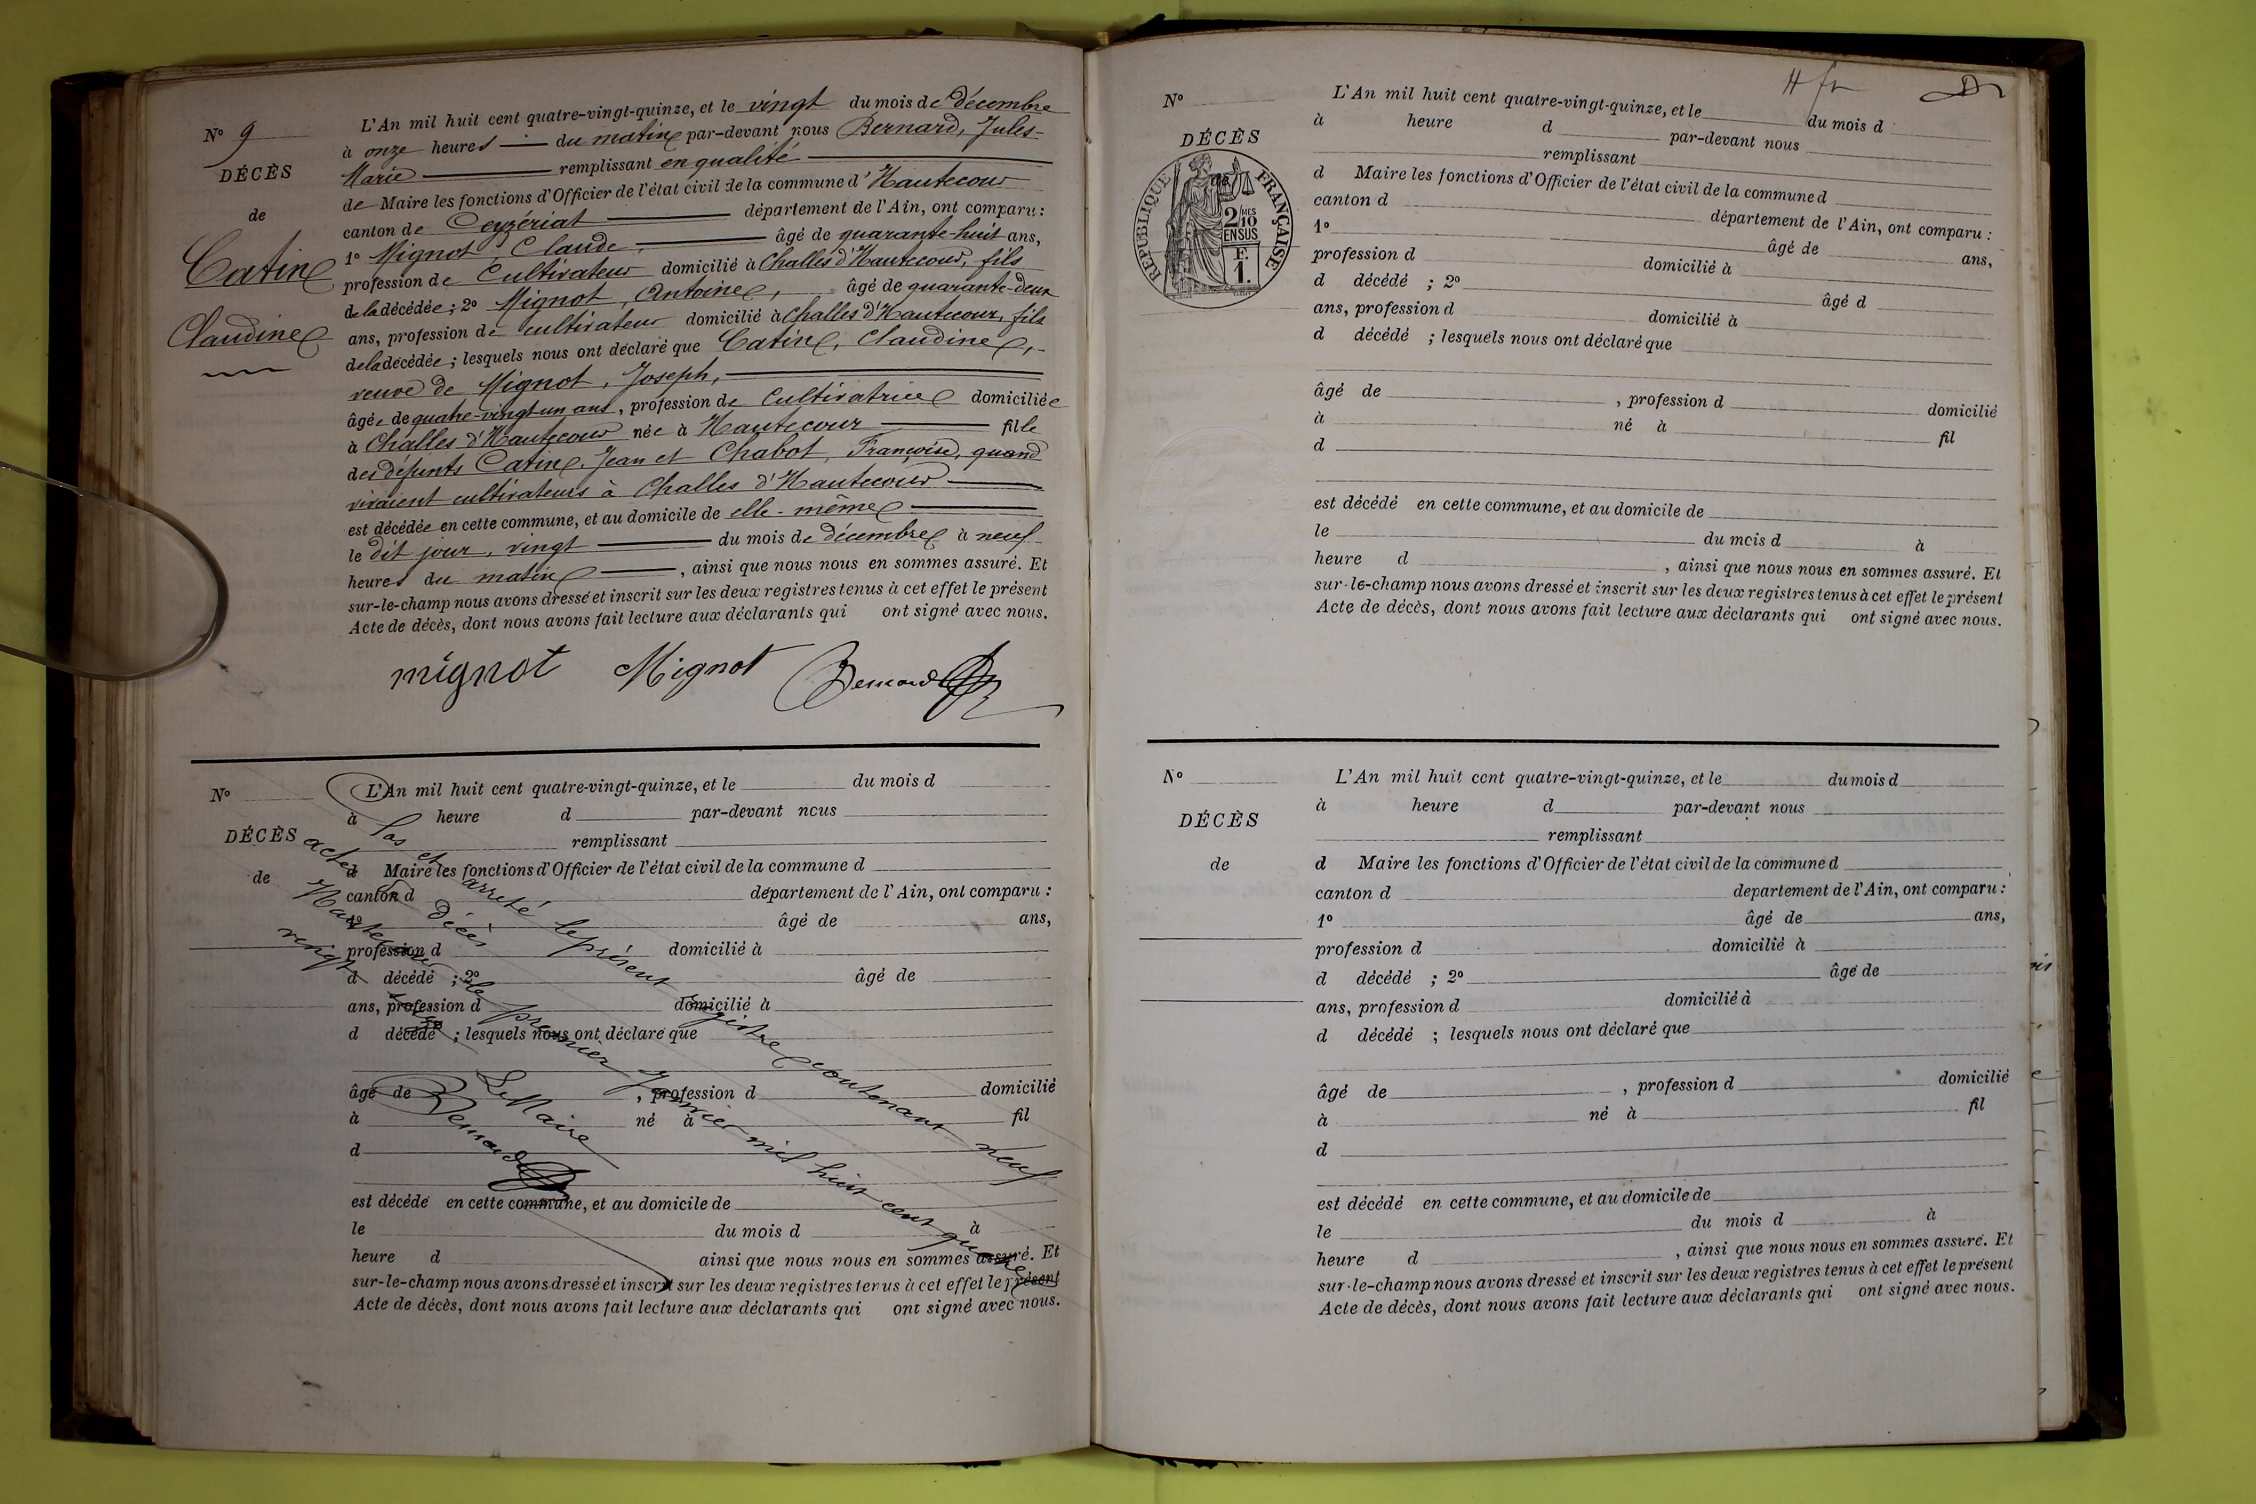 N° 9
DÉCÈS
de
Catin
Claudine
L'An mil huit cent quatre-vingt-quinze, et le vingt du mois de décembre
à onze heures du matin par-devant nous Bernard, Jules-
Marie remplissant en qualité
de Maire les fonctions d'Officier de l'état civil de la commune d'Hautecour
canton de Ceyzériat département de l'Ain, ont comparu :
1° Mignot, Claude, âgé de quarante-huit ans,
profession de Cultivateur domicilié à Challes d'Hautecour, fils
de la décédée ; 2° Mignot, Antoine, âgé de quarante-deux
ans, profession de cultivateur domicilié à Challes d'Hautecour, fils
de la décédée ; lesquels nous ont déclaré que Catin, Claudine,
veuve de Mignot, Joseph,
âgée de quatre-vingt-un ans, profession de Cultivatrice domiciliée
à Challes d'Hautecour née à Hautecour fille
des défunts Catin, Jean et Chabot, Françoise, quand
vivaient cultivateurs à Challes d'Hautecour
est décédée en cette commune, et au domicile de elle-même
le dit jour, vingt du mois de décembre à neuf
heures du matin, ainsi que nous nous en sommes assuré. Et
sur-le-champ nous avons dressé et inscrit sur les deux registres tenus à cet effet le présent
Acte de décès, dont nous avons fait lecture aux déclarants qui ont signé avec nous.
mignot Mignot Bernard
N°
DÉCÈS
de
L'An mil huit cent quatre-vingt-quinze, et le du mois d
à heure d par-devant nous
remplissant
d Maire les fonctions d'Officier de l'état civil de la commune d
canton d département de l'Ain, ont comparu :
1° âgé de ans,
profession d domicilié à
d décédé ; 2° âgé de
ans, profession d domicilié à
d décédé ; lesquels nous ont déclaré que
âgé de , profession d domicilié
à né à fil
d
est décédé en cette commune, et au domicile de
le du mois d à
heure d ainsi que nous nous en sommes assuré. Et
sur-le-champ nous avons dressé et inscrit sur les deux registres tenus à cet effet le présent
Acte de décès, dont nous avons fait lecture aux déclarants qui ont signé avec nous.
Clos et arrêté le présent registre contenant neuf
actes de décès
Hautecour le premier Janvier mil huit cent quatre
vingt seize
Le Maire
Bernard
H f
N°
DÉCÈS
de
RÉPUBLIQUE FRANÇAISE
2/10 MES
EN SUS
F.
1.
L'An mil huit cent quatre-vingt-quinze, et le du mois d
à heure d par-devant nous
remplissant
d Maire les fonctions d'Officier de l'état civil de la commune d
canton d département de l'Ain, ont comparu :
1° âgé de ans,
profession d domicilié à
d décédé ; 2° âgé d
ans, profession d domicilié à
d décédé ; lesquels nous ont déclaré que
âgé de , profession d domicilié
à né à fil
d
est décédé en cette commune, et au domicile de
le du mois d à
heure d , ainsi que nous nous en sommes assuré. Et
sur-le-champ nous avons dressé et inscrit sur les deux registres tenus à cet effet le présent
Acte de décès, dont nous avons fait lecture aux déclarants qui ont signé avec nous.
N°
DÉCÈS
de
L'An mil huit cent quatre-vingt-quinze, et le du mois d
à heure d par-devant nous
remplissant
d Maire les fonctions d'Officier de l'état civil de la commune d
canton d departement de l'Ain, ont comparu :
1° âgé de ans,
profession d domicilié à
d décédé ; 2° âgé de
ans, profession d domicilié à
d décédé ; lesquels nous ont déclaré que
âgé de , profession d domicilié
à né à fil
d
est décédé en cette commune, et au domicile de
le du mois d à
heure d , ainsi que nous nous en sommes assuré. Et
sur-le-champ nous avons dressé et inscrit sur les deux registres tenus à cet effet le présent
Acte de décès, dont nous avons fait lecture aux déclarants qui ont signé avec nous.